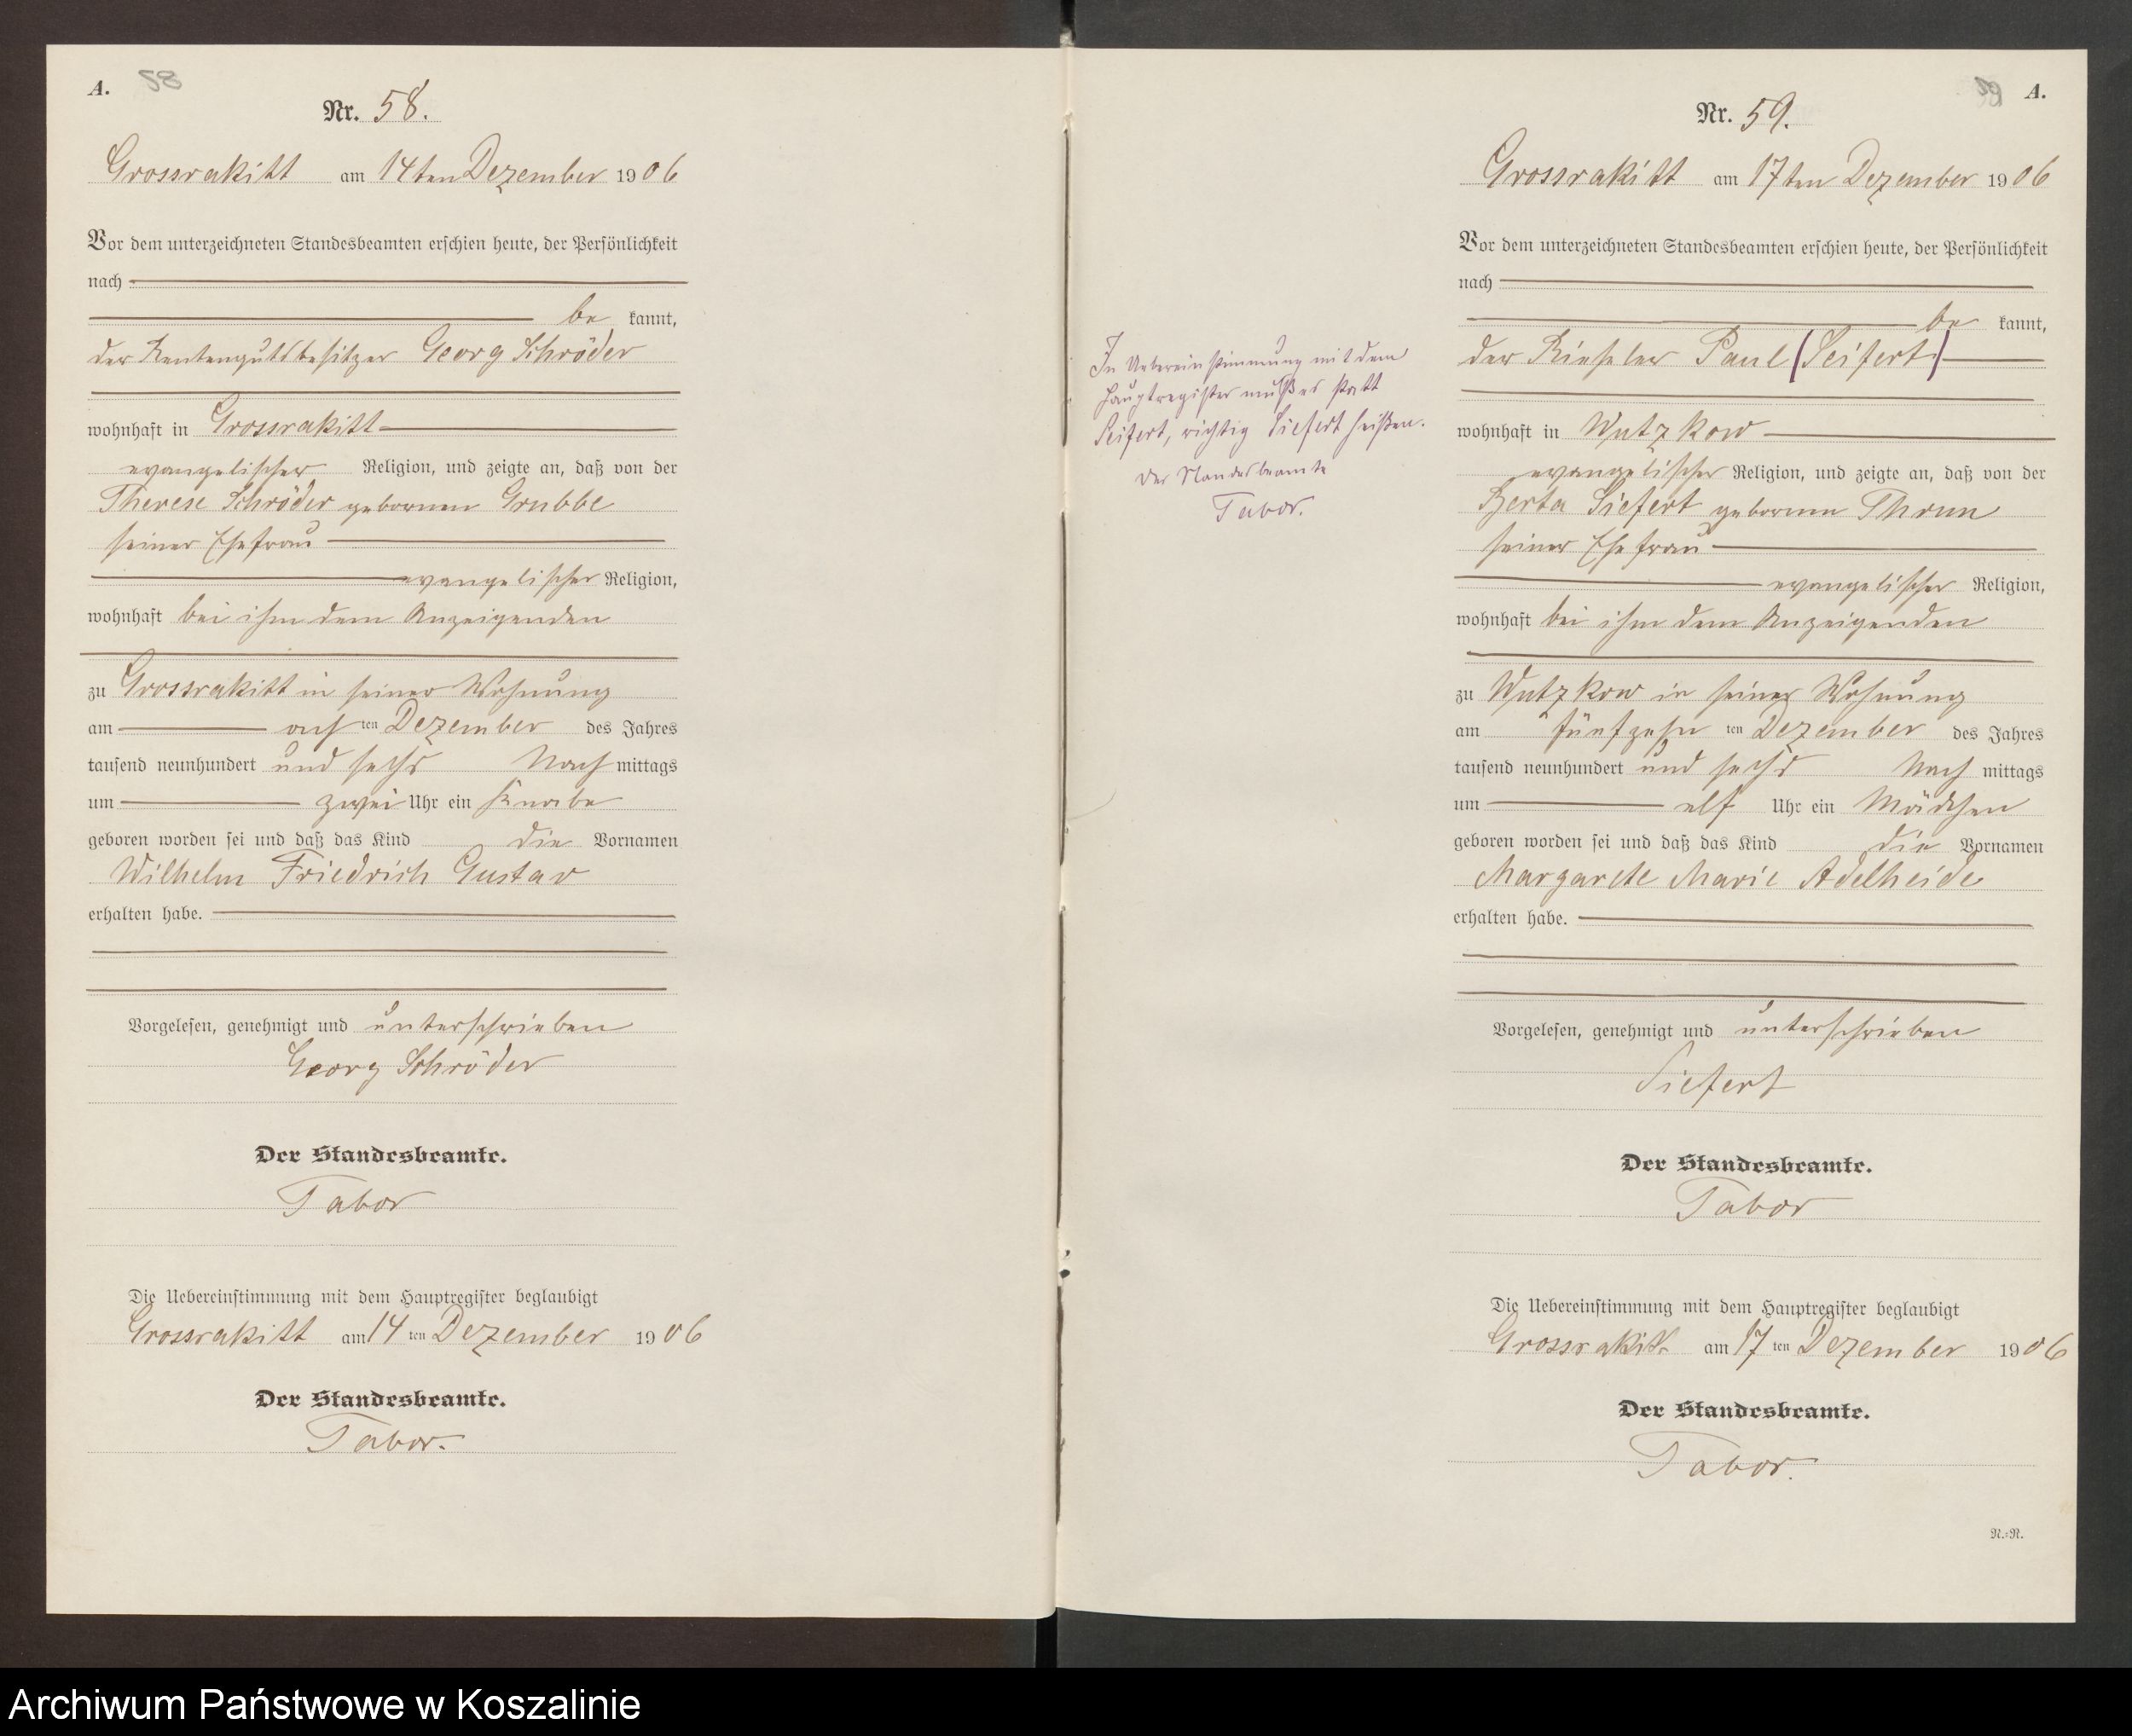 A. 58
Nr. 58.
Grossrakitt am 14ten Dezember 1906
Vor dem unterzeichneten Standesbeamten erschien heute, der Persönlichkeit
nach
be kannt,
der Rentengutsbesitzer Georg Schröder
wohnhaft in Grossrakitt
evangelischer Religion, und zeigte an, daß von der
Therese Schröder gebornen Grubbe
seiner Ehefrau
evangelischer Religion,
wohnhaft bei ihm dem Anzeigenden
zu Grossrakitt in seiner Wohnung
am acht ten Dezember des Jahres
tausend neunhundert und sechs Nach mittags
um zwei Uhr ein Knabe
geboren worden sei und daß das Kind die Vornamen
Wilhelm Friedrich Gustav
erhalten habe.
Vorgelesen, genehmigt und unterschrieben
Georg Schröder
Der Standesbeamte.
Tabor
Die Uebereinstimmung mit dem Hauptregister beglaubigt
Grossrakitt am 14 ten Dezember 1906
Der Standesbeamte.
Tabor.
In Uebereinstimmung mit dem
Hauptregister muß es statt
Seifert, richtig Siefert heißen.
Der Standesbeamte
Tabor.
59 A.
Nr. 59.
Grossrakitt am 17ten Dezember 1906
Vor dem unterzeichneten Standesbeamten erschien heute, der Persönlichkeit
nach
be kannt,
der Rieseler Paul (Seifert)
wohnhaft in Wutzkow
evangelischer Religion, und zeigte an, daß von der
Berta Siefert gebornen Thrun
seiner Ehefrau
evangelischer Religion,
wohnhaft bei ihm dem Anzeigenden
zu Wutzkow in seiner Wohnung
am fünfzehn ten Dezember des Jahres
tausend neunhundert und sechs Nach mittags
um elf Uhr ein Mädchen
geboren worden sei und daß das Kind die Vornamen
Margarete Marie Adelheide
erhalten habe.
Vorgelesen, genehmigt und unterschrieben
Siefert
Der Standesbeamte.
Tabor
Die Uebereinstimmung mit dem Hauptregister beglaubigt
Grossrakitt am 17 ten Dezember 1906
Der Standesbeamte.
Tabor.
N.=N.
Archiwum Państwowe w Koszalinie